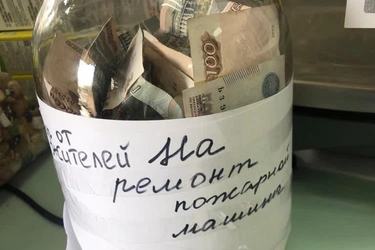 от
жителей На
ремонт
пожарной
машины